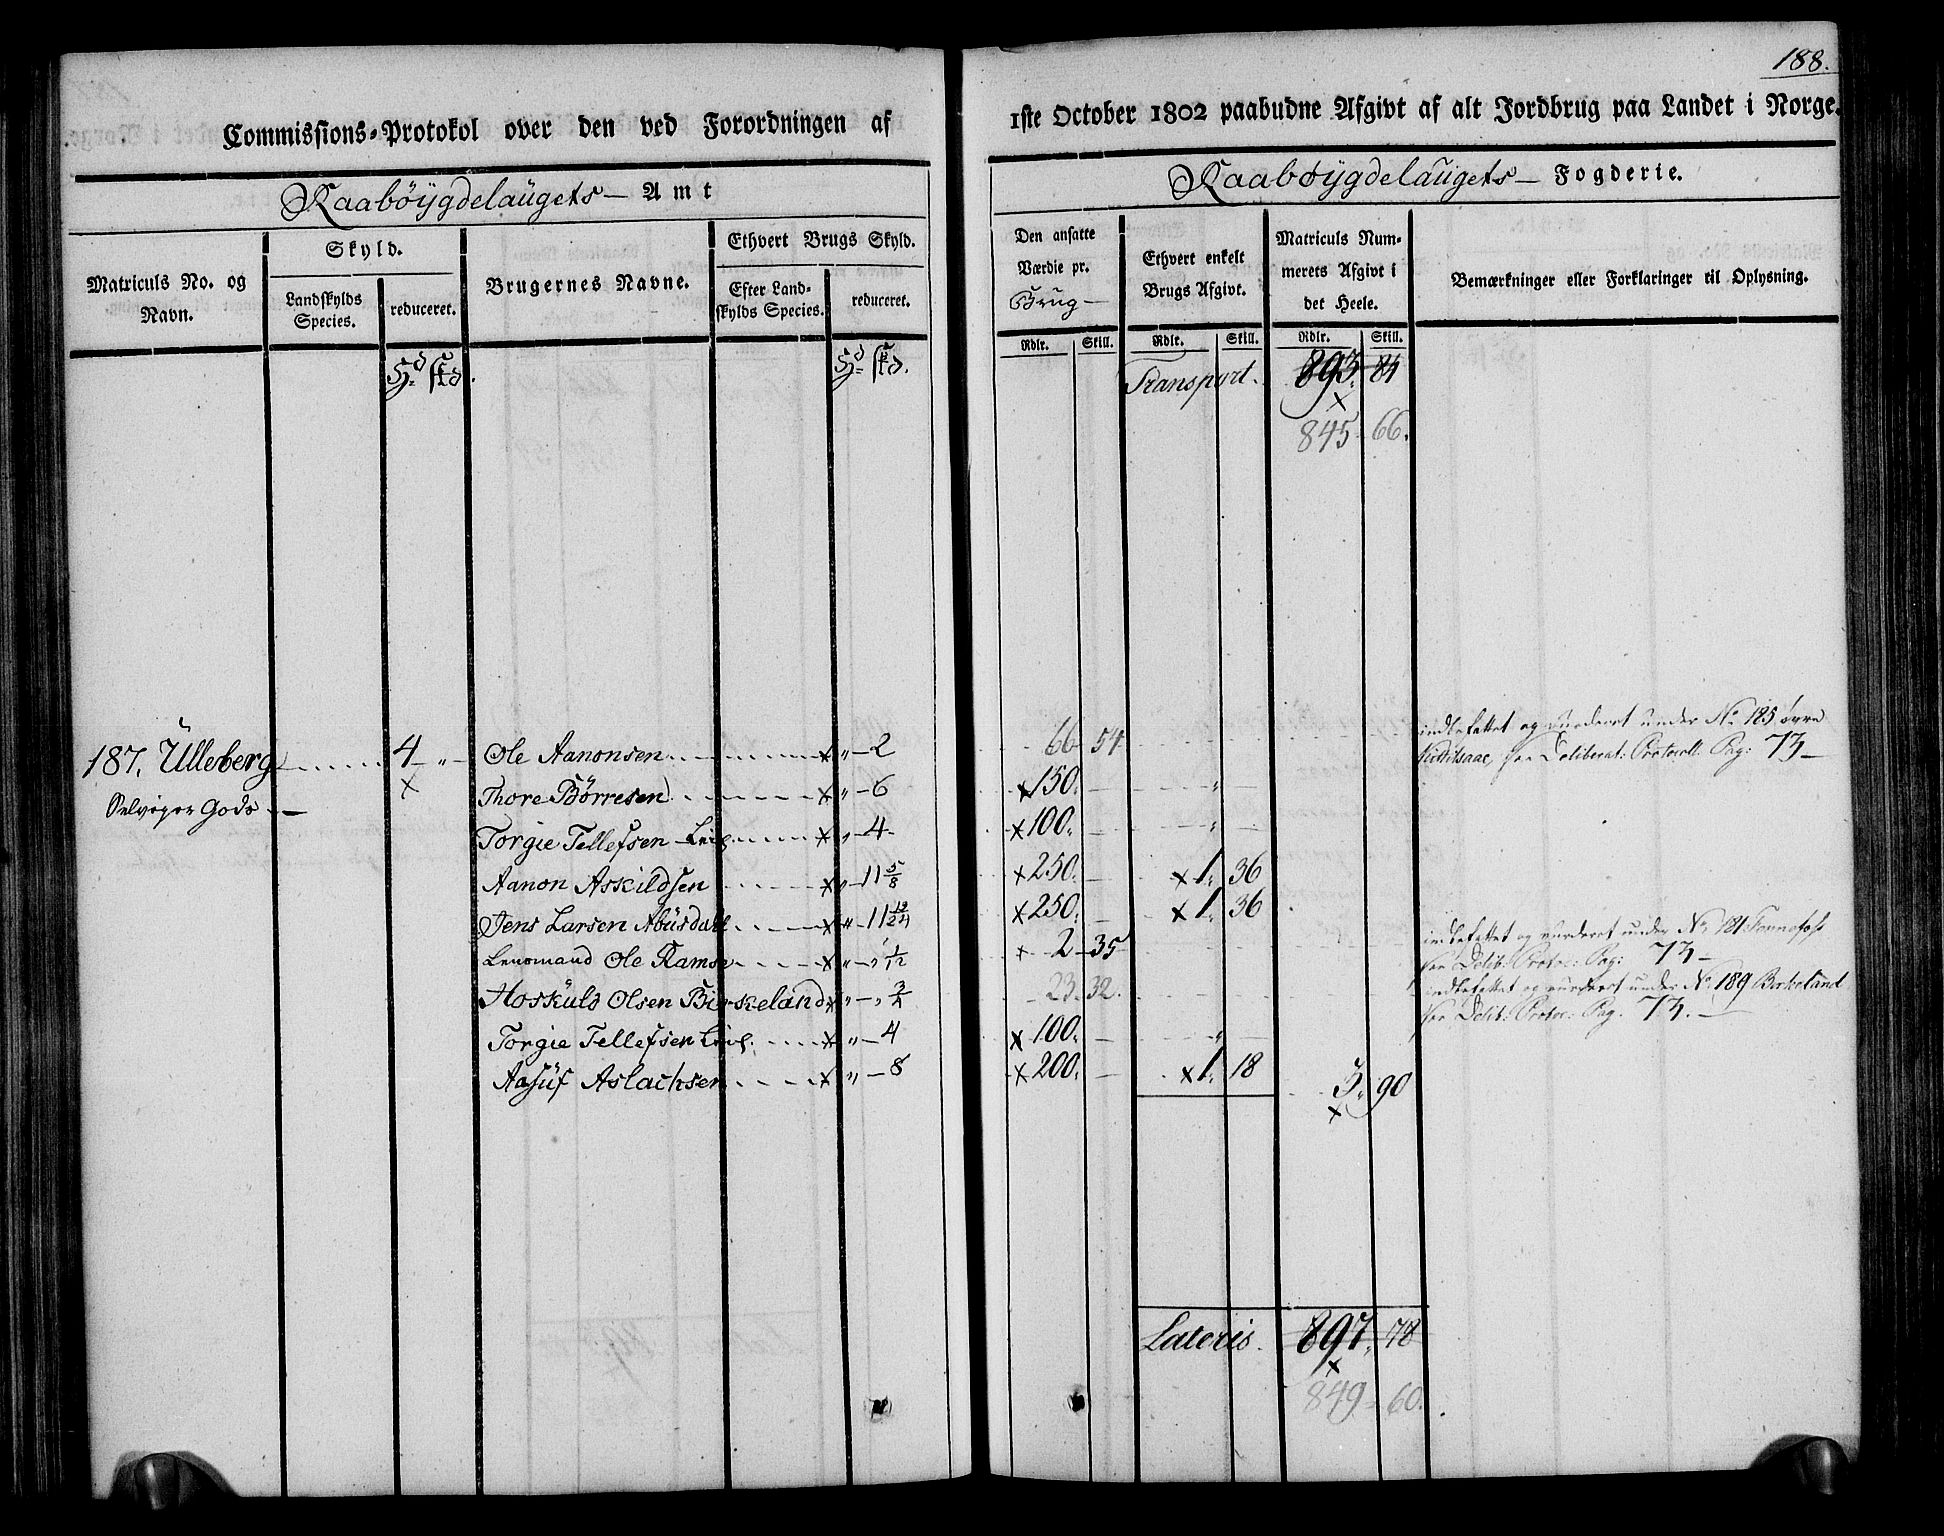 188.
Commissions-Protokol over den ved Forordningen af
1ste October 1802 paabudne Afgivt af alt Jordbrug paa Landet i Norge.
Raabøygdelaugets Amt
Raabøygdelaugets Fogderie.
Matriculs No. og Navn.
Skyld.
Landskylds Species.
reduceret.
Brugernes Navne.
Ethvert Brugs Skyld.
Efter Landskylds Species.
reduceret.
Den ansatte Værdie pr. Brug
Ethvert enkelt Brugs Afgivt.
Matriculs Nummerets Afgivt i det Heele.
Bemærkninger eller Forklaringer til Oplysning.
Rdlr. Skill. Rdlr. Skill. Rdlr. Skill.
Hd skd. Hd skd.
Transport. 893. 84
845. 66.
187. Ulleberg 4 " Ole Aanonsen " 2 66 54 indbefattet og vurderet under No 185 øvre
Selveyer Gods Kiltilsaae, see Deliberat: Protocoll Pag: 73
Thore Børresen " 6 150. "
Torgie Tellefsen Leil. " 4 100. "
Aanon Askildsen " 11 5/8 250. 1. 36
Jens Larsen Abusdal " 11 13/24 250. 1. 36
Lensmand Ole Ramse " " 1/12 2 35 indbefattet og vurderet under No 181
see Delib: Protoc: Pag: 73
Hoskuld Olsen Birkeland " " 3/4 23. 32. indbefattet og vurderet under No 189 Birkeland
see Delib: Protoc: Pag. 73.
Torgie Tellefsen Leil. " 4 100. "
Aasuf Aslachsen " 8 200. 1. 18
3. 90
Lateris. 897. 78
849. 60.